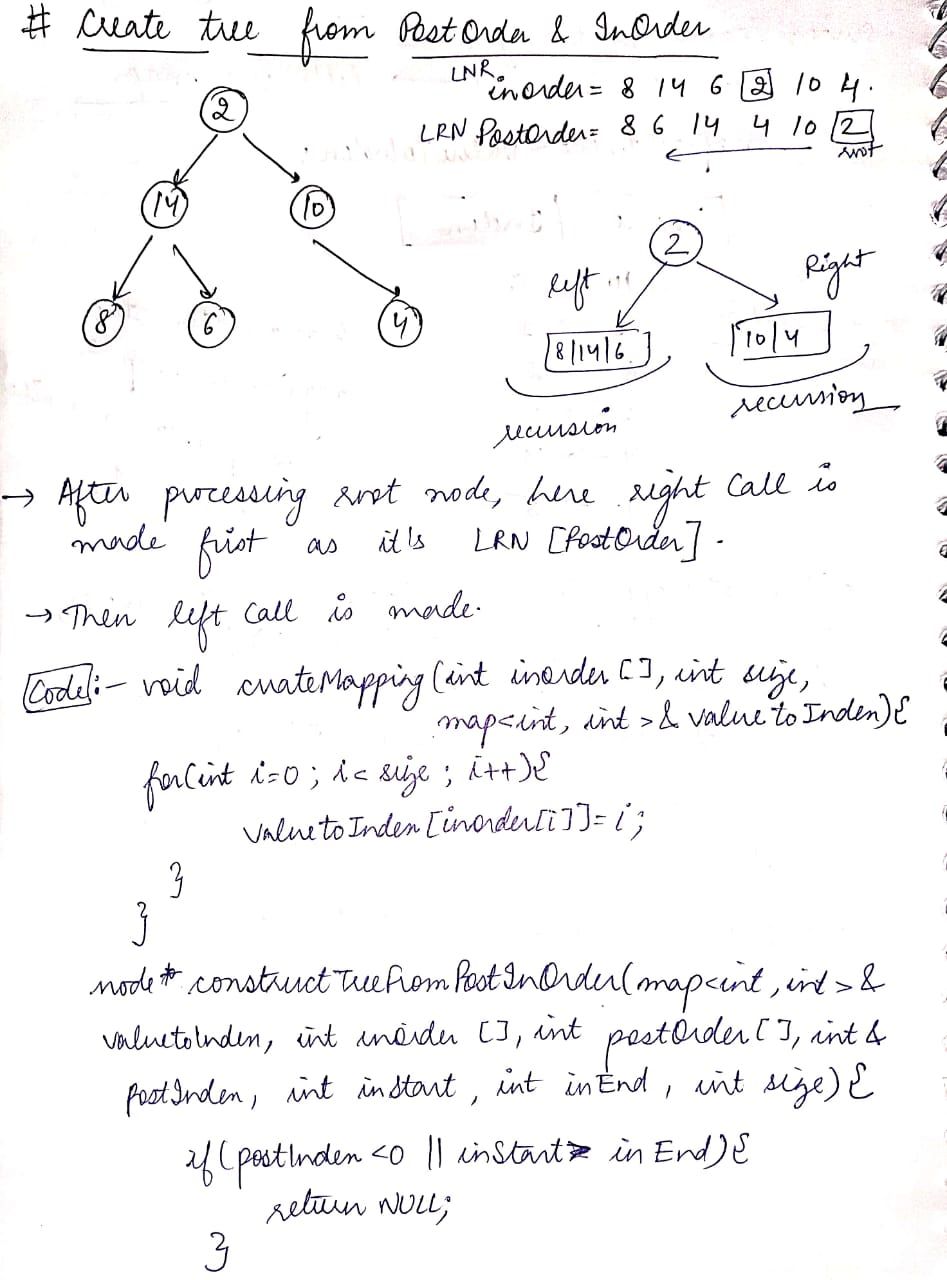 # Create tree from PostOrder & InOrder
LNR
inorder = 8 14 6 2 10 4.
LRN PostOrder = 8 6 14 4 10 2
root
2
14 10
8 6 4
2
left Right
8|14|6 10|4
recursion recursion
→ After processing root node, here right call is
made first as it's LRN [PostOrder].
→ Then left call is made.
Code:- void createMapping(int inorder[], int size,
map<int, int>& valuetoIndex){
for(int i=0; i< size; i++){
valuetoIndex[inorder[i]]=i;
}
}
node* constructTreeFromPostInOrder(map<int, int>&
valuetoIndex, int inorder [], int postOrder[], int&
PostIndex, int instart, int inEnd, int size){
if(postIndex <0 || inStart> inEnd){
return NULL;
}